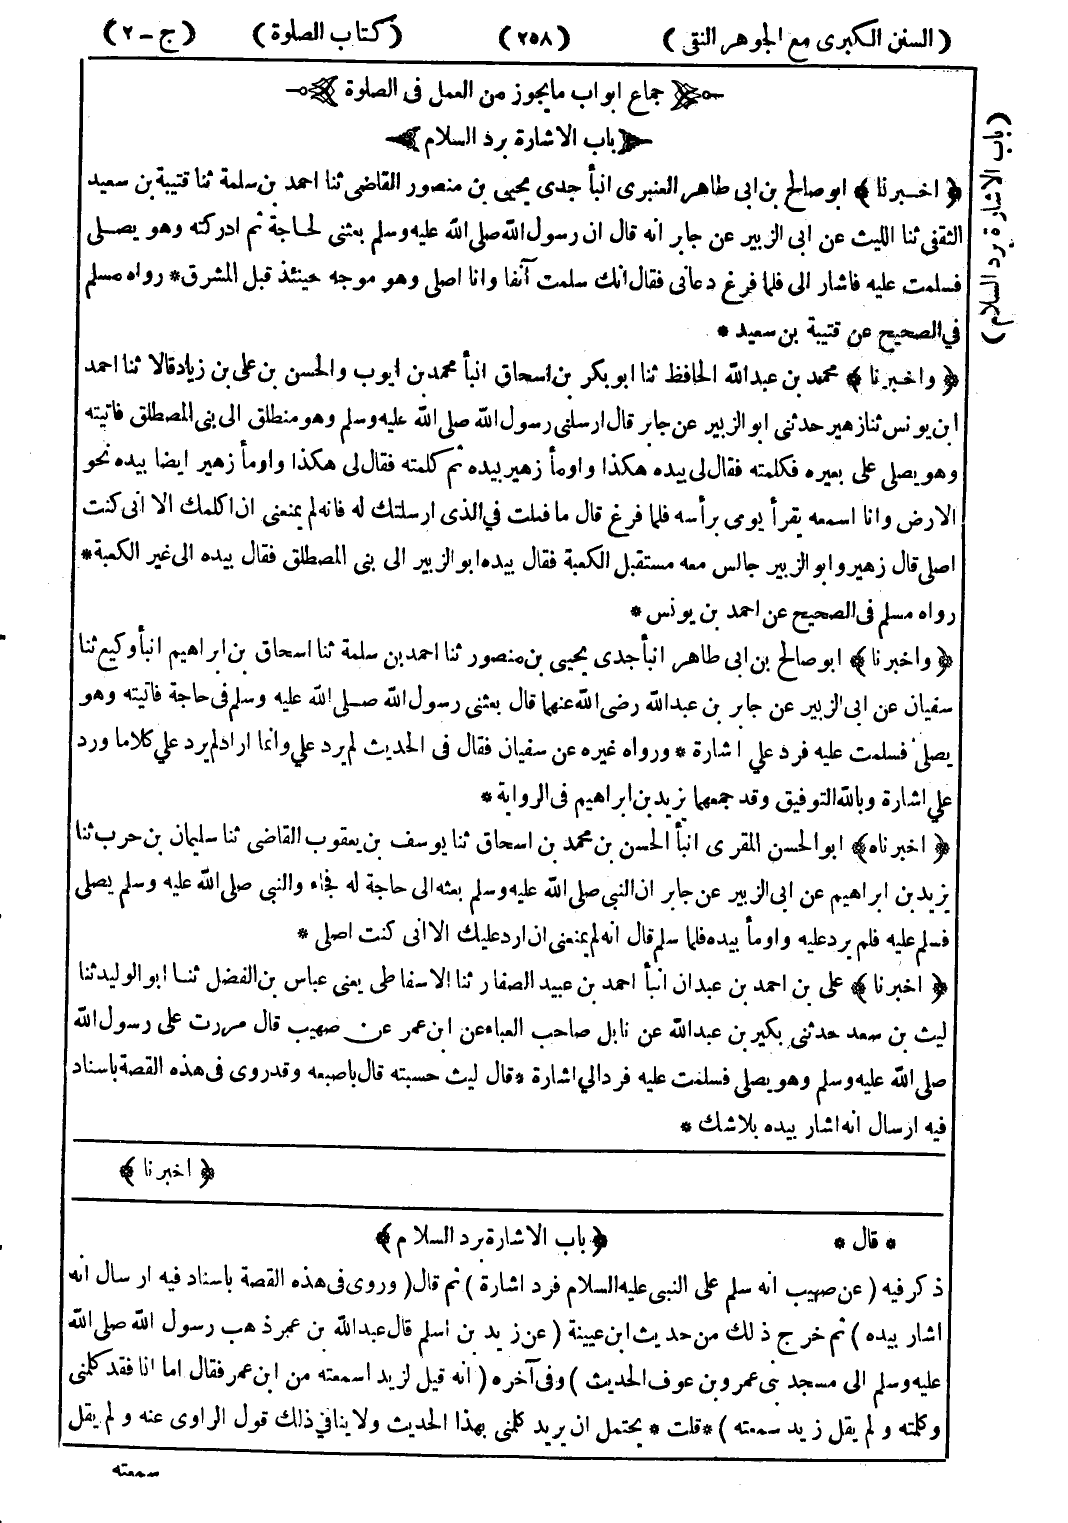 (السنن الكبرى مع الجوهر النقى) (٢٥٨) (كتاب الصلوة) (ج - ٢)
جماع ابواب مايجوز من العمل فى الصلوة
باب الاشارة برد السلام
(باب الاشارة برد السلام)
﴿ اخبرنا ﴾ ابو صالح بن ابى طاهر العنبرى انبأ جدى يحيى بن منصور القاضى ثنا احمد بن سلمة ثنا قتيبة بن سعيد
الثقفى ثنا الليث عن ابى الزبير عن جابر انه قال ان رسول الله صلى الله عليه وسلم بعثنى لحاجة ثم ادركته وهو يصلى
فسلمت عليه فاشار الى فلما فرغ دعانى فقال انك سلمت آنفا وانا اصلى وهو موجه حينئذ قبل المشرق * رواه مسلم
في الصحيح عن قتيبة بن سعيد *
﴿ واخبرنا ﴾ محمد بن عبد الله الحافظ ثنا ابو بكر بن اسحاق انبأ محمد بن ايوب والحسن بن على بن زياد قالا ثنا احمد
ابن يونس ثنا زهير حدثنى ابو الزبير عن جابر قال ارسلنى رسول الله صلى الله عليه وسلم وهو منطلق الى بنى المصطلق فاتيته
وهو يصلى على بعيره فكلمته فقال لى بيده هكذا واومأ زهير بيده ثم كلمته فقال لى هكذا واومأ زهير ايضا بيده نحو
الارض وانا اسمعه يقرأ يومى برأسه فلما فرغ قال ما فعلت في الذى ارسلتك له فانه لم يمنعنى ان اكلمك الا انى كنت
اصلى قال زهير وابو الزبير جالس معه مستقبل الكعبة فقال بيده ابو الزبير الى بنى المصطلق فقال بيده الى غير الكعبة *
رواه مسلم فى الصحيح عن احمد بن يونس *
﴿ واخبرنا ﴾ ابو صالح بن ابى طاهر انبأ جدى يحيى بن منصور ثنا احمد بن سلمة ثنا اسحاق بن ابراهيم انبأ وكيع ثنا
سفيان عن ابى الزبير عن جابر بن عبد الله رضى الله عنهما قال بعثنى رسول الله صلى الله عليه وسلم فى حاجة فاتيته وهو
يصلى فسلمت عليه فرد علي اشارة * ورواه غيره عن سفيان فقال فى الحديث لم يرد علي وانما اراد لم يرد علي كلاما ورد
علي اشارة وبالله التوفيق وقد جمعهما يزيد بن ابراهيم فى الرواية *
﴿ اخبرناه ﴾ ابو الحسن المقرى انبأ الحسن بن محمد بن اسحاق ثنا يوسف بن يعقوب القاضى ثنا سليمان بن حرب ثنا
يزيد بن ابراهيم عن ابى الزبير عن جابر ان النبى صلى الله عليه وسلم بعثه الى حاجة له فجاء والنبى صلى الله عليه وسلم يصلى
فسلم عليه فلم يرد عليه واومأ بيده فلما سلم قال انه لم يمنعنى ان ارد عليك الا انى كنت اصلى *
﴿ اخبرنا ﴾ على بن احمد بن عبدان انبأ احمد بن عبيد الصفار ثنا الاسفاطى يعنى عباس بن الفضل ثنا ابو الوليد ثنا
ليث بن سعد حدثنى بكير بن عبد الله عن نابل صاحب العباء عن ابن عمر عن صهيب قال مررت على رسول الله
صلى الله عليه وسلم وهو يصلى فسلمت عليه فرد الي اشارة * قال ليث حسبته قال باصبعه وقد روى فى هذه القصة باسناد
فيه ارسال انه اشار بيده بلا شك *
﴿ اخبرنا ﴾
* قال * ﴿ باب الاشارة برد السلام ﴾
ذكر فيه (عن صهيب انه سلم على النبى عليه السلام فرد اشارة) ثم قال (وروى فى هذه القصة باسناد فيه ارسال انه
اشار بيده) ثم خرج ذلك من حديث ابن عيينة (عن زيد بن اسلم قال عبد الله بن عمر ذهب رسول الله صلى الله
عليه وسلم الى مسجد بنى عمرو بن عوف الحديث) وفى آخره (انه قيل لزيد اسمعته من ابن عمر فقال اما انا فقد كلمنى
وكلمته ولم يقل زيد سمعته) * قلت * يحتمل ان يريد كلمنى بهذا الحديث ولا ينافي ذلك قول الراوى عنه ولم يقل
سمعته